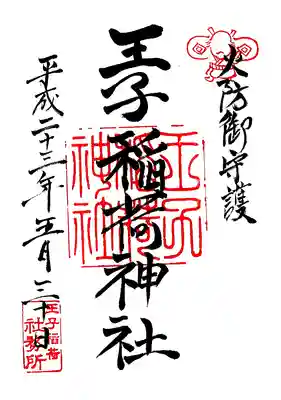 火防御守護
王子稲荷神社
平成二十三年五月三十日
王子稲荷神社
王子稲荷
社務所